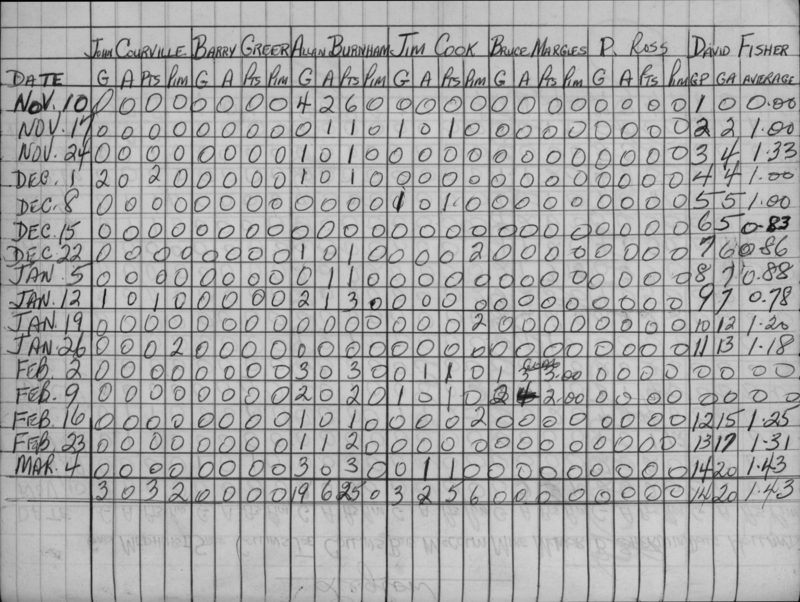 John Courville Barry Greer Allan Burnham Jim Cook Bruce Margles P. Ross David Fisher
Date G A Pts Pim G A Pts Pim G A Pts Pim G A Pts Pim G A Pts Pim G A Pts Pim GP GA Average
Nov. 10 0 0 0 0 0 0 0 0 4 2 6 0 0 0 0 0 0 0 0 0 0 0 0 0 1 0 0.00
Nov. 17 0 0 0 0 0 0 0 0 0 1 1 0 1 0 1 0 0 0 0 0 0 0 0 0 2 2 1.00
Nov. 24 0 0 0 0 0 0 0 0 1 0 1 0 0 0 0 0 0 0 0 0 0 0 0 0 3 4 1.33
Dec. 1 2 0 2 0 0 0 0 0 1 0 1 0 0 0 0 0 0 0 0 0 0 0 0 0 4 4 1.00
Dec. 8 0 0 0 0 0 0 0 0 0 0 0 0 1 0 1 0 0 0 0 0 0 0 0 0 5 5 1.00
Dec. 15 0 0 0 0 0 0 0 0 0 0 0 0 0 0 0 0 0 0 0 0 0 0 0 0 6 5 0.83
Dec. 22 0 0 0 0 0 0 0 0 1 0 1 0 0 0 0 2 0 0 0 0 0 0 0 0 7 6 0.86
Jan. 5 0 0 0 0 0 0 0 0 0 1 1 0 0 0 0 0 0 0 0 0 0 0 0 0 8 7 0.88
Jan. 12 1 0 1 0 0 0 0 0 2 1 3 0 0 0 0 0 0 0 0 0 0 0 0 0 9 7 0.78
Jan. 19 0 0 0 0 0 0 0 0 0 0 0 0 0 0 0 2 0 0 0 0 0 0 0 0 10 12 1.20
Jan. 26 0 0 0 2 0 0 0 0 0 0 0 0 0 0 0 0 0 0 0 0 0 0 0 0 11 13 1.18
Feb. 2 0 0 0 0 0 0 0 0 3 0 3 0 0 1 1 0 1 3 3.00 0 0 0 0 0 0 0
Feb. 9 0 0 0 0 0 0 0 0 2 0 2 0 1 0 1 0 2 4 2.00 0 0 0 0 0 0 0
Feb. 16 0 0 0 0 0 0 0 0 1 0 1 0 0 0 0 2 0 0 0 0 0 0 0 0 12 15 1.25
Feb. 23 0 0 0 0 0 0 0 0 1 1 2 0 0 0 0 0 0 0 0 0 0 0 0 0 13 17 1.31
Mar. 4 0 0 0 0 0 0 0 0 3 0 3 0 0 1 1 0 0 0 0 0 0 0 0 0 14 20 1.43
3 0 3 2 0 0 0 0 19 6 25 0 3 2 5 6 0 0 0 0 0 0 0 0 14 20 1.43